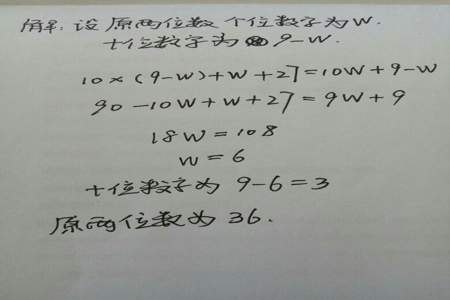 解:设原两位数个位数字为W.
十位数字为9-W.
10×(9-W)+W+27=10W+9-W
90-10W+W+27=9W+9
18W=108
W=6
十位数字为 9-6=3
原两位数为36.